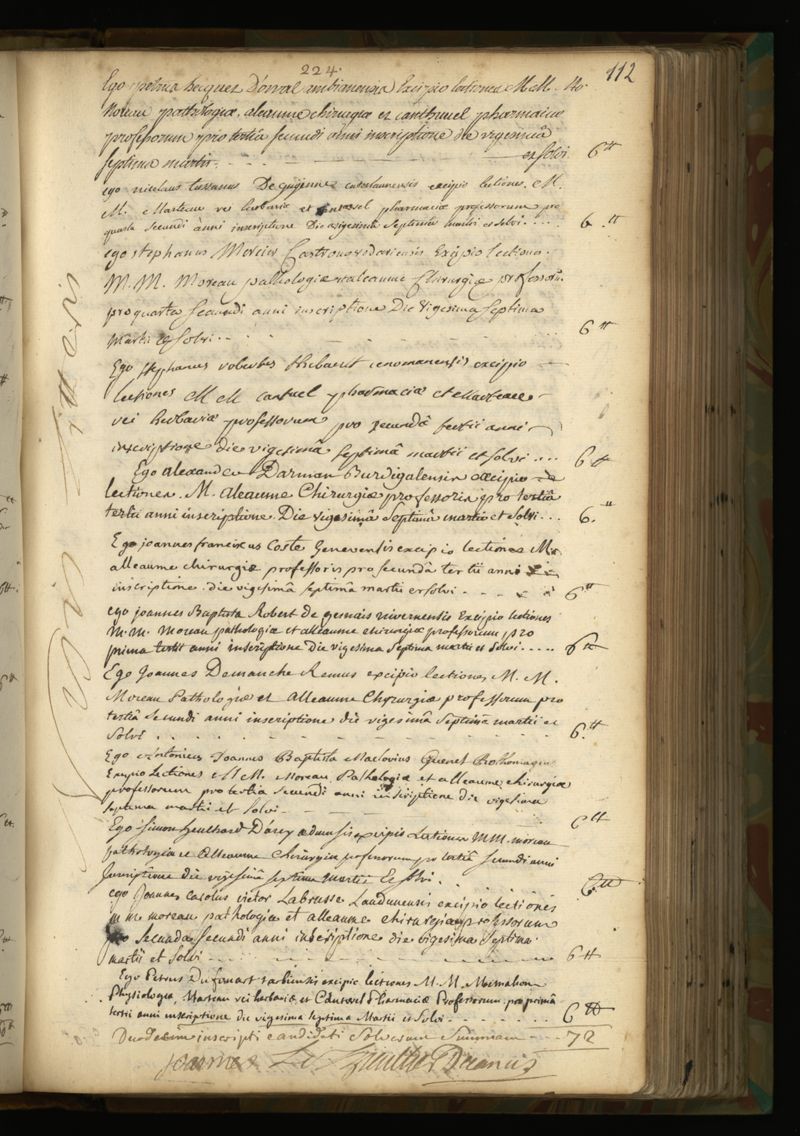 224.
112
Ego
Dorval ambianensis Excipio lectiones M.M. Mo-
Moreau pathologiæ, aleaume chirurgiæ et cantwel pharmaciæ
professorum pro tertiâ secundi anni inscriptione die vigesimâ
septima martii et solvi 6 ₶
ego nicolaus De guÿenne excipio lectiones M.
M. Marteau rei herbariæ et cantvel pharmaciæ professorum pro
quarta secundi anni inscriptione Die vigesima Septima martii et solvi..... 6 ₶
ego stephanus Mercier Excipio lectiones
M. M. Moreau pathologiæ et aleaume Chirurgiæ professorum
pro quarta secundi anni inscriptione Die vigesima septima
Martii et solvi 6 ₶
Ego stephanus robertus thebaut cenomanensis excipio
lectiones M M cantuel pharmaciæ et Marteau
rei herbariæ professorum pro secundâ tertii anni
inscriptione die vigesimâ septimâ martii et solvi.... 6 ₶
Ego alexander Darman Burdigalensis excipio
lectiones M. aleaume Chirurgiæ professoris pro tertiâ
tertii anni inscriptione. Die vigesimâ Septimâ martii et solvi... 6.
Ego joannes franciscus Coste Genevensis excipio lectiones M.
alleaume chirurgiæ professoris pro secundâ tertii anni
inscriptione. die vigesimâ septimâ martii et solvi 6 ₶
ego joannes Baptista Robert de gemais nivernensis Excipio lectiones
M. M. Moreau pathologiæ et alleaume chirurgiæ professorum pro
prima tertii anni inscriptione die vigesima septima martii et solvi..... 6 ₶
Ego Joannes Demanche Remus excipio lectiones M. M.
Moreau Pathologiæ et alleaume Chyrurgiæ professorum pro
tertiâ secundi anni inscriptione die vigesimâ septimâ martii et
solvi 6. ₶
Ego antonius Joannes Baptista Maclovius Quenet Rothomagus
Excipio Lectiones M M. Moreau Pathologiæ et alleaume chirurgiæ
professorum pro tertia secundi anni inscriptione die vigesima
septima martii et solvi 6 ₶
Ego Simon excipio Lectiones M M. moreau
pathologiæ et alleaume chirurgiæ professorum pro tertiâ secundi anni
Inscriptione die vigesimâ septimâ martii et solvi. 6 ₶
ego Joannes carolus victor Labrusse Laudunensis excipio lectiones
m m moreau pathologiæ et alleaume chirurgiæ professorum
pro secunda secundi anni inscriptione die vigesima septima
martii et solvi 6 ₶
Ego Petrus Dufouart tarbiensis excipio lectiones M. M. Macmahon
Physiologiæ, Marteau rei herbariæ et Cantwel Pharmaciæ Professorum pro primâ
tertii anni inscriptione die vigesima septima Martii et solvi 6 ₶
Duodecim inscripti candidati solverunt Summam 72